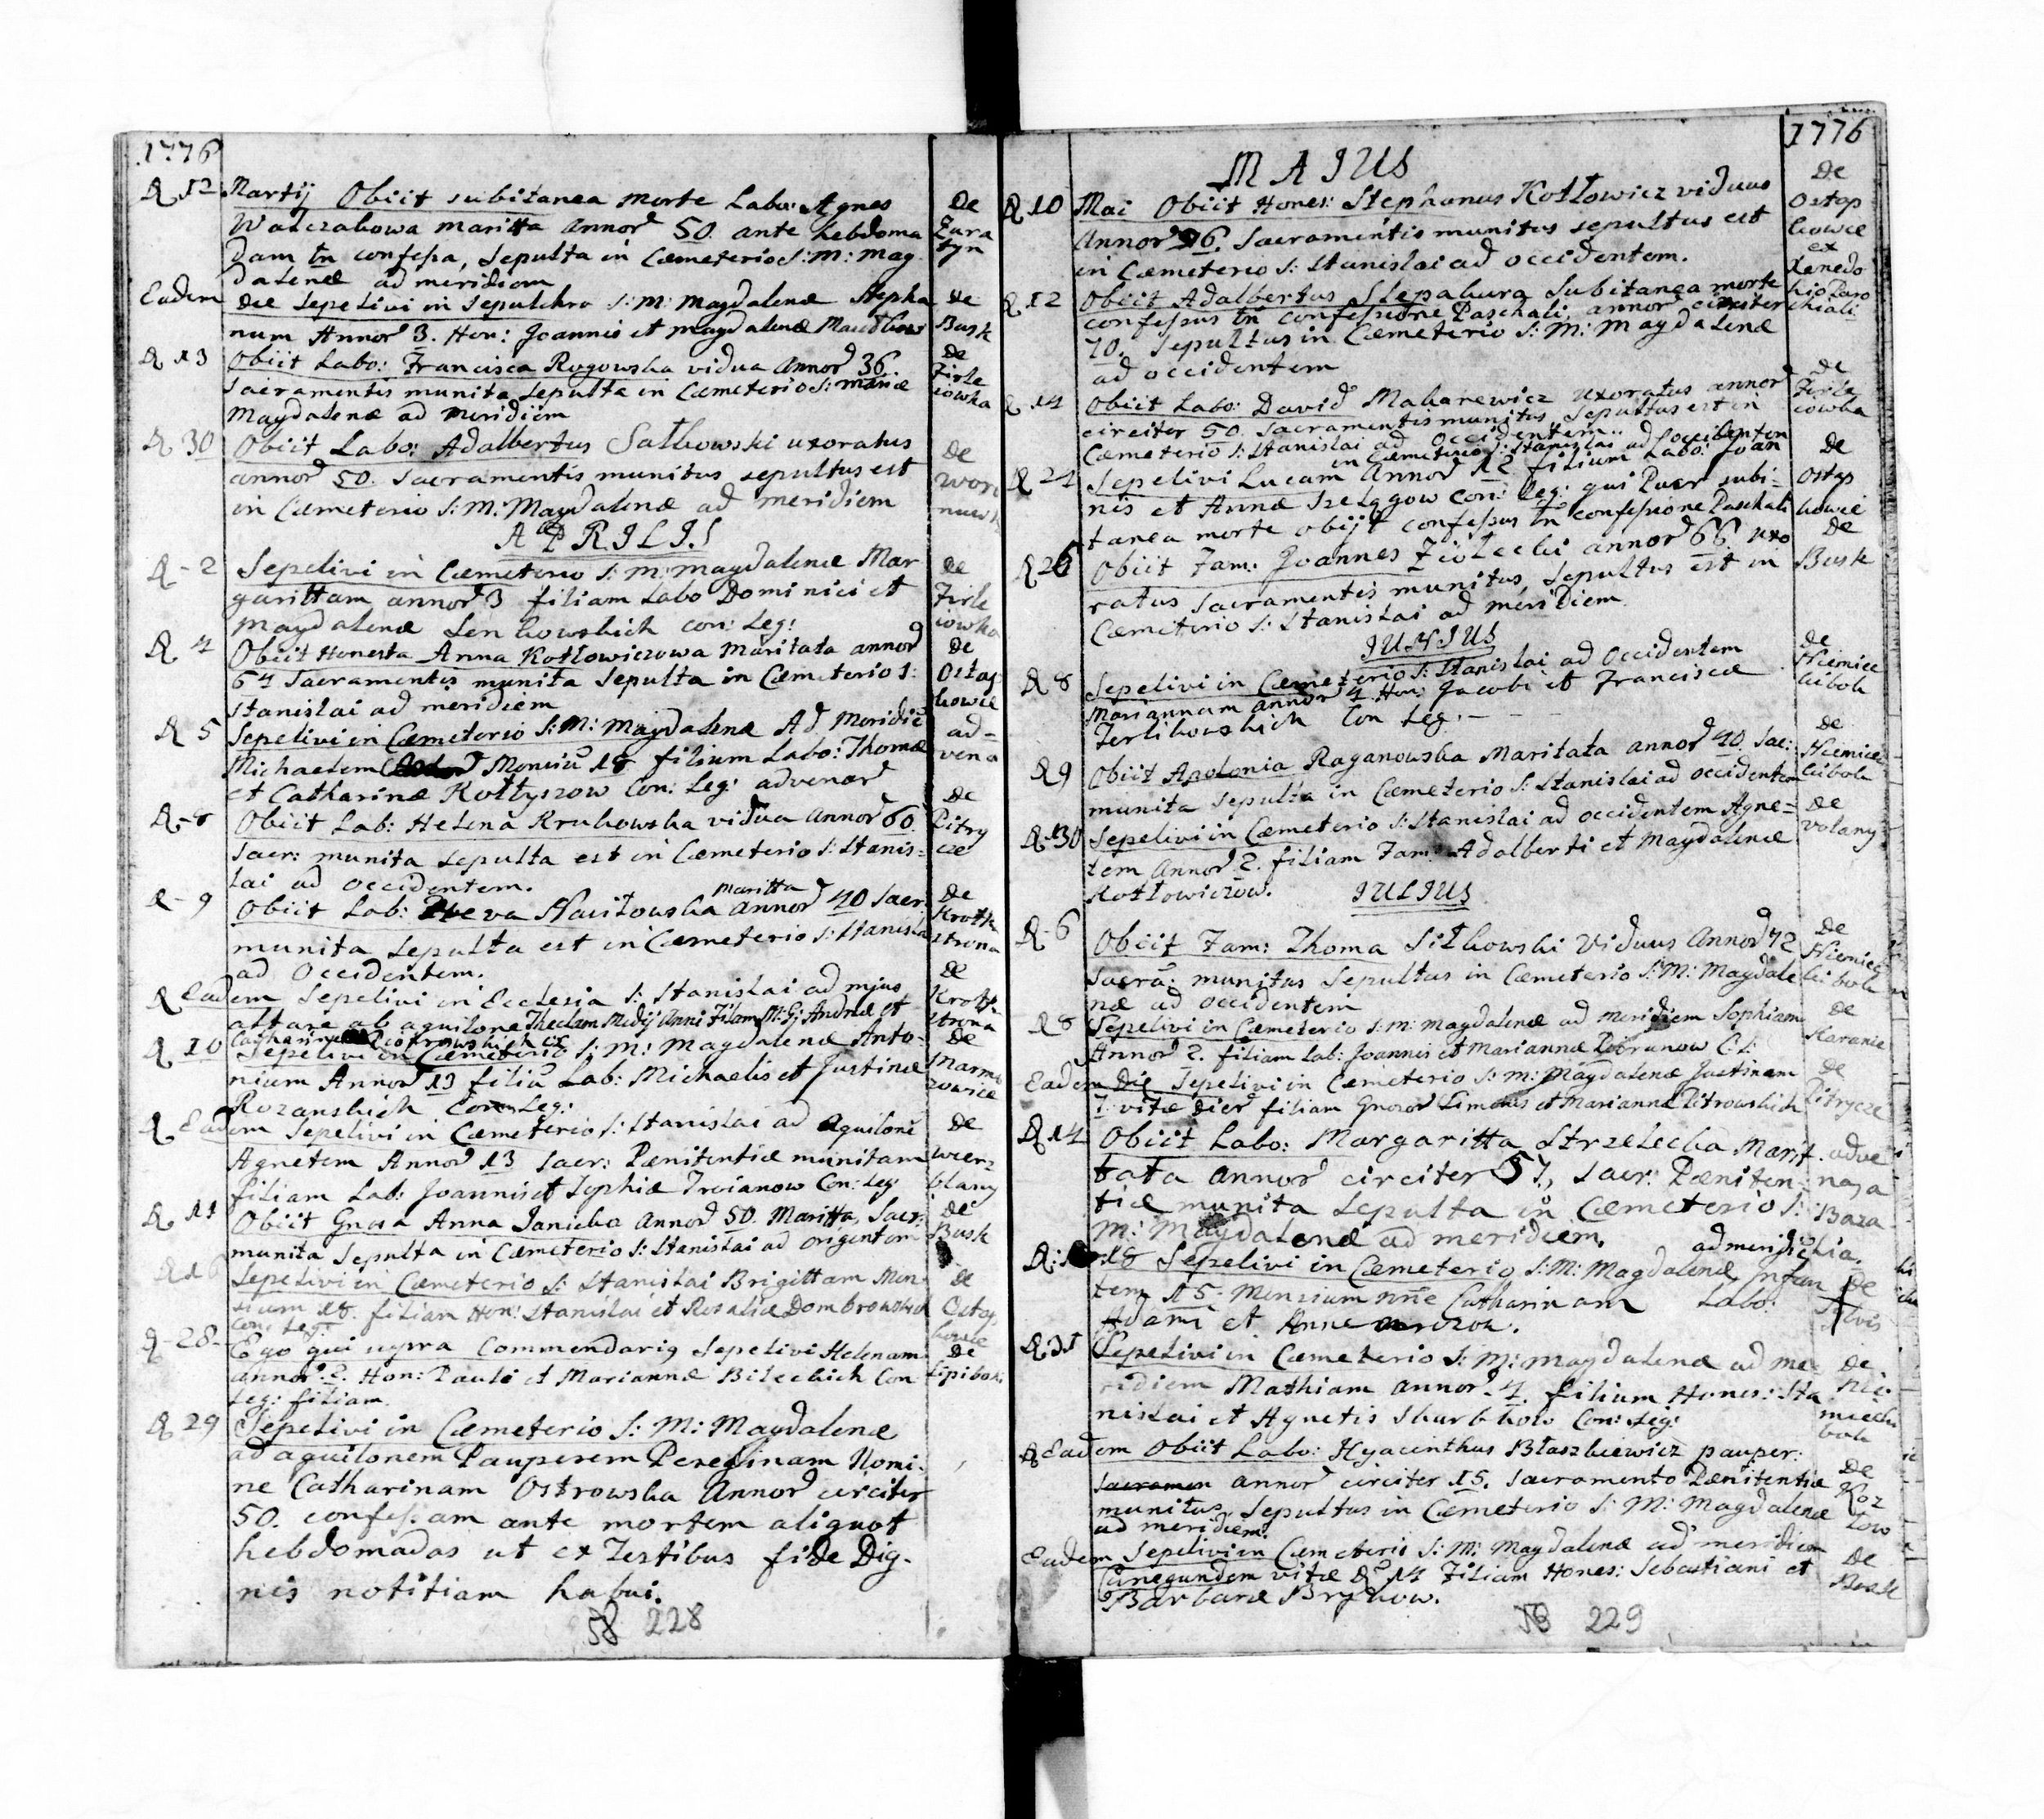 1776
D 12 Martij Obiit subitanea morte Labo: Agnes De
Walczakowa maritta Annor 50. ante hebdoma Zura
dam tn confessa, Sepulta in Cæmeterio S: M: Mag tyn
dalenæ ad meridiem
Eadem die Sepelivi in Sepulchro S: M: Magdalenæ Stepha de
num Annor 3. Hon: Joannis et Magdalenæ Busk
D 13 Obiit Labo: Francisca Rogowska vidua Annor 36. De
Sacramentis munita Sepulta in Cæmeterio S: Mariæ Firle
Magdalenæ ad Meridiem iowka
D 30 Obiit Labo: Adalbertus Sałkowski uxoratus De
annor 50. Sacramentis munitus sepultus est
in Cæmeterio S: M: Magdalenæ ad meridiem
APRILIS
D - 2 Sepelivi in Cæmeterio S: M: Magdalenæ Mar De
garittam annor 3 filiam Labo Dominici et Firle
Magdalenæ Lenkowskich con: Leg: iowka
D 4 Obiit Honesta Anna Kotłowiczowa Maritata annor De
64 Sacramentis munita Sepulta in Cæmeterio S: Ostap
Stanislai ad meridiem kowce
D 5 Sepelivi in Cæmeterio S: M: Magdalenæ Ad Meridiē ad-
Michaelem Mensiū 18 filium Labo: Thomæ vena
et Catharinæ Kołtyszow Con: Leg: advenar
D - 8 Obiit Lab: Helena Krukowska vidua Annor 60 De
Sacr: munita Sepulta est in Cæmeterio S: Stanis- Pitry
lai ad occidentem. cze
maritta
D - 9 Obiit Lab: Heva Nawitowska annor 40 Sacr: De
munita Sepulta est in Cæmeterio S: Stanislai Krotko
ad Occidentem. strona
D Eadem Sepelivi in Ecclesia S: Stanislai ad mjus De
altare ab aquilone Theclam Medij Anni Filam M: Gi Andreæ et Krotko
Catharinæ Piotrowskich strona
D 10 Sepelivi in Cæmeterio S: M: Magdalenæ Anto- De
nium Annor 13 filiū Lab: Michaelis et Justinæ
Rozanskich Con: Leg:
D Eadem Sepelivi in Cæmeterio S: Stanislai ad Aquilonē De
Agnetem Annor 13 Sacr: Pænitentiæ munitam wierz
filiam Lab: Joannis et Sophiæ Troianow Con: Leg: blany
D 11 Obiit Gnosa Anna Janicka Annor 50. Maritta, Sacr: De
munita Sepulta in Cæmeterio S: Stanislai ad orientem Busk
D 16 Sepelivi in Cæmeterio S: Stanislai Brigittam Men- de
sium 18. filiam Hon: Stanislai et Rosaliæ Dombrowskich Ostap
Con: Leg: kowce
D - 28 - Ego qui supra Commendarig Sepelivi Helenam De
annor 2. Hon: Pauli et Mariannæ Bileckich Con Lipibok
Leg: filiam.
D 29 Sepelivi in Cæmeterio S: M: Magdalenæ
ad aquilonem Pauperem Peregrinam Nomi-
ne Catharinam Ostrowska Annor circiter
50. confessam ante mortem aliquot
hebdomadas ut ex Testibus fide Dig-
nis notitiam habui.
58 228
1776
MAIUS
D 10 Mai Obiit Hones: Stephanus Kotłowicz viduus De
Annor 96. Sacramentis munitus sepultus est Ostap
in Cæmeterio S: Stanislai ad occidentem. kowce
D 12 Obiit Adalbertus Slepakura Subitanea morte ex
confessus tn confessione Paschali, annor circiter Xenodo
70. Sepultus in Cæmeterio S: M: Magdalenæ chio Paro
ad occidentem chiali
D 14 Obiit Labo: David Makarewicz uxoratus annor De
circiter 50. Sacramentis munitus, Sepultus est in Firle
Cæmeterio S: Stanislai ad Occidentem. iowka
in Cæmeterio S: Stanislai ad Occidentem
D 24 Sepelivi Lucam Annor 12 filium Labo: Joan De
nis et Annæ Szelągow con: Leg: qui Puer subi- Ostap
tanea morte obijt confessus tn confessione Paschali kowce
D 26 Obiit Fam: Joannes Ziołecki annor 66 uxo De
ratus Sacramentis munitus, Sepultus est in Busk
Cæmeterio S: Stanislai ad meridiem.
JUNIUS
D 8 Sepelivi in Cæmeterio S: Stanislai ad Occidentem de
Mariannam annor 4 Hon: Jacobi et Franciscæ Niemiec
Terlikowskich Con Leg: - kibok
D 9 Obiit Apolonia Raganowska Maritata annor 40. Sac: de
munita Sepulta in Cæmeterio S: Stanislai ad occidentem Niemiec
kibok
D 30 Sepelivi in Cæmeterio S: Stanislai ad occidentem Agne= de
tem Annor 2. filiam Fam: Adalberti et Magdalenæ volany
Kotłowiczow.
JULIUS
D - 6 Obiit Fam: Thoma Sitkowski Viduus Annor 72 De
Sacra: munitus Sepultus in Cæmeterio S: M: Magdale Niemiec
næ ad occidentem kibok
D 8 Sepelivi in Cæmeterio S: M: Magdalenæ ad meridiem Sophiam De
Annor 2. filiam Lab: Joannis et Mariannæ C: L:
Eadem Die Sepelivi in Cæmeterio S: M: Magdalenæ Justinam De
7 vitæ dier filiam Gnosor Simonis et Mariannæ Pitrowskich Pitrycze
D 14 Obiit Labo: Margaritta Strzelecka Marit- adve
tata annor circiter 57, Sacr: Pæniten- na, a
tiæ munita Sepulta in Cæmeterio S: Baza
M: Magdalenæ ad meridiem. lia.
ad meridiē
D: 18 Sepelivi in Cæmeterio S: M: Magdalenæ, Infan De
tem 15. Mensium nne Catharinam Labo: Sylvis
Adami et Annæ Mrozow.
D: 31 Sepelivi in Cæmeterio S: M: Magdalenæ ad me- De
ridiem Mathiam annor 4. filium Hones: Sta Nie-
nislai et Agnetis Skurbkow Con: Leg: miecku
bok
D Eadem Obiit Labo: Hyacinthus Błaszkiewicz pauper:
Sacramen annor circiter 15. Sacramento Pænitentiæ De
munitus, Sepultus in Cæmeterio S: M: Magdalenæ Koz
ad meridiem. low
Eadem Sepelivi in Cæmeterio S: M: Magdalenæ ad meridiem
Cunegundem vitæ Dr 14 Filiam Hones: Sebastiani et De
Barbaræ Brykow. Busk
58 229